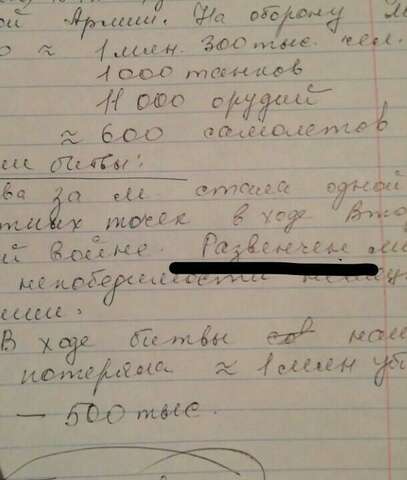 ой Армии. На оборону М
о ≈ 1 млн. 300 тыс. чел.
1000 танков
11 000 орудий
≈ 600 самолетов
ии битвы:
ва за М. стала одной
тных точек в ходе Вто
й войне. Развенчен ми
непобедимости немец
мии.
В ходе битвы наш
потеряла ≈ 1 млн уби
— 500 тыс.